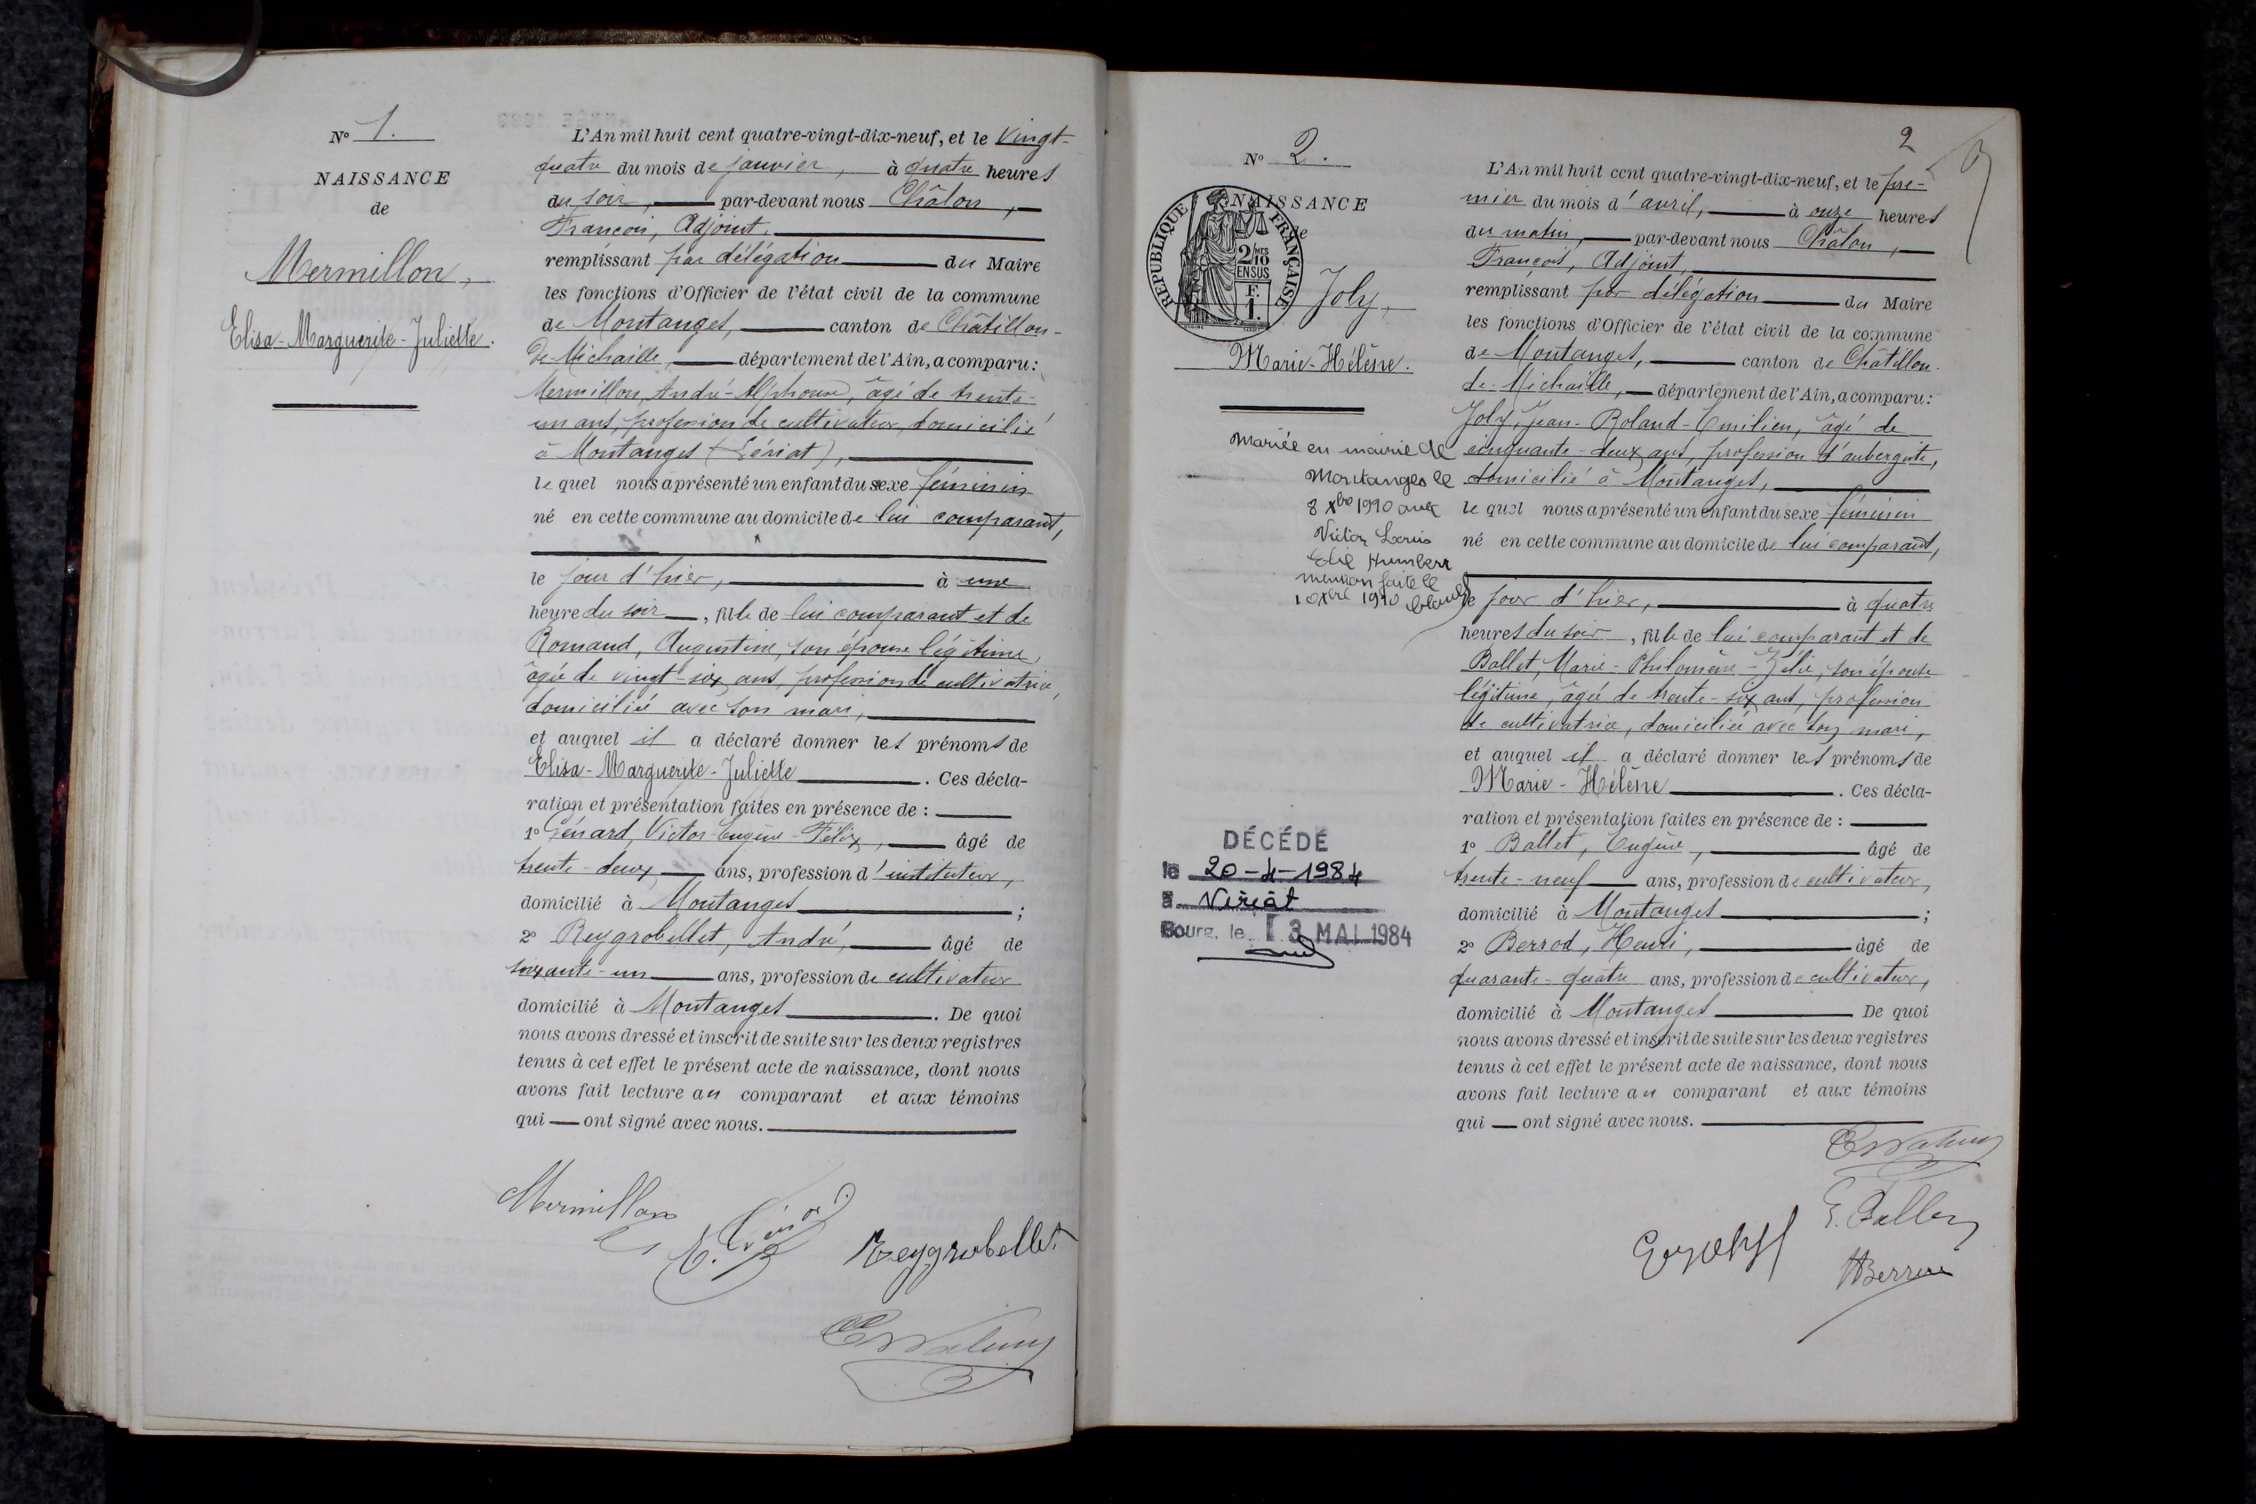 N° 1.
NAISSANCE
de
Mermillon,
Elisa-Marguerite-Juliette.
L'An mil huit cent quatre-vingt-dix-neuf, et le vingt-
quatre du mois de janvier, à quatre heures
du soir, par-devant nous Châlon,
François, Adjoint,
remplissant par délégation du Maire
les fonctions d'Officier de l'état civil de la commune
de Montanges, canton de Châtillon-
de-Michaille, département de l'Ain, a comparu:
Mermillon, André-Alphonse, âgé de trente-
un ans, profession de cultivateur, domicilié
à Montanges (Lériat),
le quel nous a présenté un enfant du sexe féminin
né en cette commune au domicile de lui comparant,
le jour d'hier, à une
heure du soir, fille de lui comparant et de
Romand, Augustine, son épouse légitime,
âgée de vingt-six ans, profession de cultivatrice,
domiciliée avec son mari,
et auquel il a déclaré donner les prénoms de
Elisa-Marguerite-Juliette. Ces décla-
ration et présentation faites en présence de :
1° Génard, Victor-Eugène-Félix, âgé de
trente-deux ans, profession d'instituteur,
domicilié à Montanges ;
2° Reygrobellet, André, âgé de
soixante-un ans, profession de cultivateur
domicilié à Montanges. De quoi
nous avons dressé et inscrit de suite sur les deux registres
tenus à cet effet le présent acte de naissance, dont nous
avons fait lecture au comparant et aux témoins
qui ont signé avec nous.
Mermillon
Reygrobellet
2
N° 2.
NAISSANCE
de
REPUBLIQUE FRANÇAISE
2/10 EN SUS
F. 1.
Joly,
Marie-Hélène.
Mariée en mairie de
Montanges le
8 Xbre 1990 avec
Victor Louis
Elie Humbert
mention faite le
10 Xbre 1990
DÉCÉDÉ
le 20-4-1984
à Viriat
Bourg, le 3 MAI 1984
L'An mil huit cent quatre-vingt-dix-neuf, et le pre-
mier du mois d'avril, à onze heures
du matin, par-devant nous Châlon,
François, Adjoint,
remplissant par délégation du Maire
les fonctions d'Officier de l'état civil de la commune
de Montanges, canton de Châtillon-
de-Michaille, département de l'Ain, a comparu:
Joly, Jean-Roland-Emilien, âgé de
cinquante-deux ans, profession d'aubergiste,
domicilié à Montanges,
le quel nous a présenté un enfant du sexe féminin
né en cette commune au domicile de lui comparant,
le jour d'hier, à quatre
heures du soir, fille de lui comparant et de
Ballet, Marie-Philomène-Zélie, son épouse
légitime, âgée de trente-six ans, profession
de cultivatrice, domiciliée avec son mari,
et auquel il a déclaré donner les prénoms de
Marie-Hélène. Ces décla-
ration et présentation faites en présence de :
1° Ballet, Eugène, âgé de
trente-neuf ans, profession de cultivateur,
domicilié à Montanges ;
2° Berrod, Henri, âgé de
quarante-quatre ans, profession de cultivateur,
domicilié à Montanges De quoi
nous avons dressé et inscrit de suite sur les deux registres
tenus à cet effet le présent acte de naissance, dont nous
avons fait lecture au comparant et aux témoins
qui ont signé avec nous.
E. Ballet